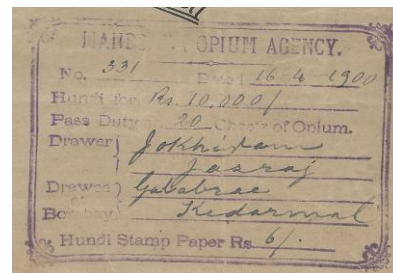 OPIUM AGENCY.
No. 331 Dated 16 4 1900
Hundi for Rs. 10,000/
Pass Duty 20 Chests of Opium.
Drawer } Jokhiram
Jasraj
Drawee }
Bombay } Kedarmal
Hundi Stamp Paper Rs. 6/.